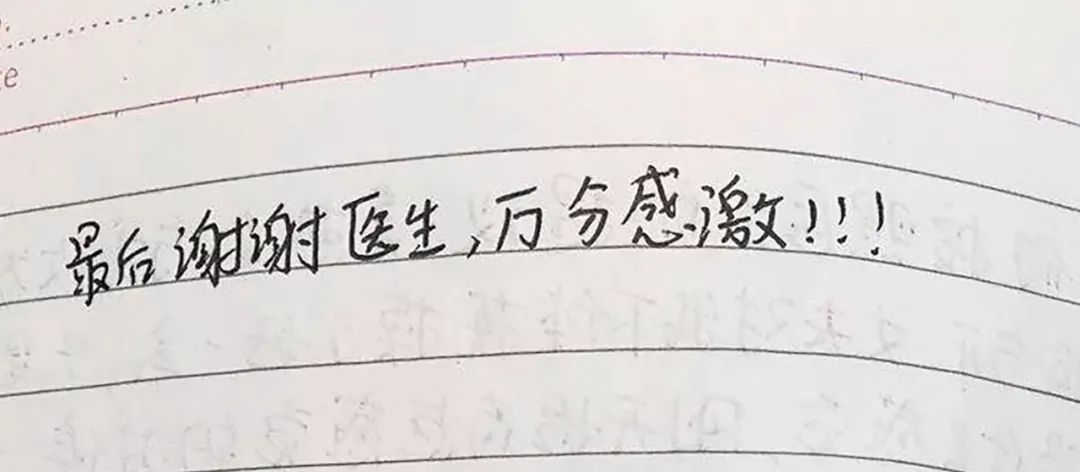 e
最后谢谢医生,万分感激!!!